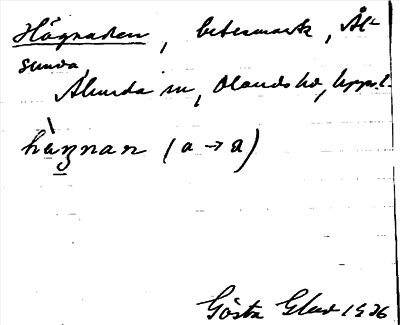 Hägnaden, betesmark, Ål-
sunda,
Alunda sn, Olands hd, Uppl.
hàgnan (a → a)
Gösta Glad 1936